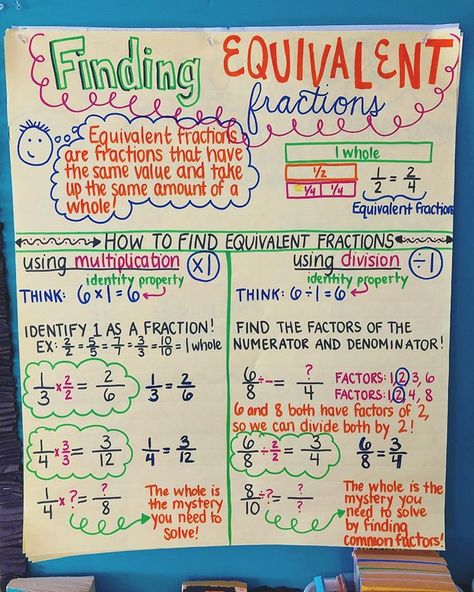 Finding EQUIVALENT
fractions
Equivalent fractions
are fractions that have
the same value and take
up the same amount of a
whole!
1 whole
1/2
1/4 1/4
1/2 = 2/4
Equivalent Fractions
HOW TO FIND EQUIVALENT FRACTIONS
using multiplication ×1
identity property
THINK: 6×1=6
IDENTIFY 1 AS A FRACTION!
EX: 2/2 = 5/5 = 7/7 = 3/3 = 10/10 = 1 whole
1/3 × 2/2 = 2/6 1/3 = 2/6
1/4 × 3/3 = 3/12 1/4 = 3/12
1/4 × ?/? = ?/8
The whole is
the mystery
you need to
solve!
using division ÷1
identity property
THINK: 6÷1=6
FIND THE FACTORS OF THE
NUMERATOR AND DENOMINATOR!
6/8 ÷ – = ?/4
FACTORS: 1, 2, 3, 6
FACTORS: 1, 2, 4, 8
6 and 8 both have factors of 2,
so we can divide both by 2!
6/8 ÷ 2/2 = 3/4 6/8 = 3/4
8/10 ÷ ?/? = ?/?
The whole is the
mystery you
need to solve
by finding
common factors!